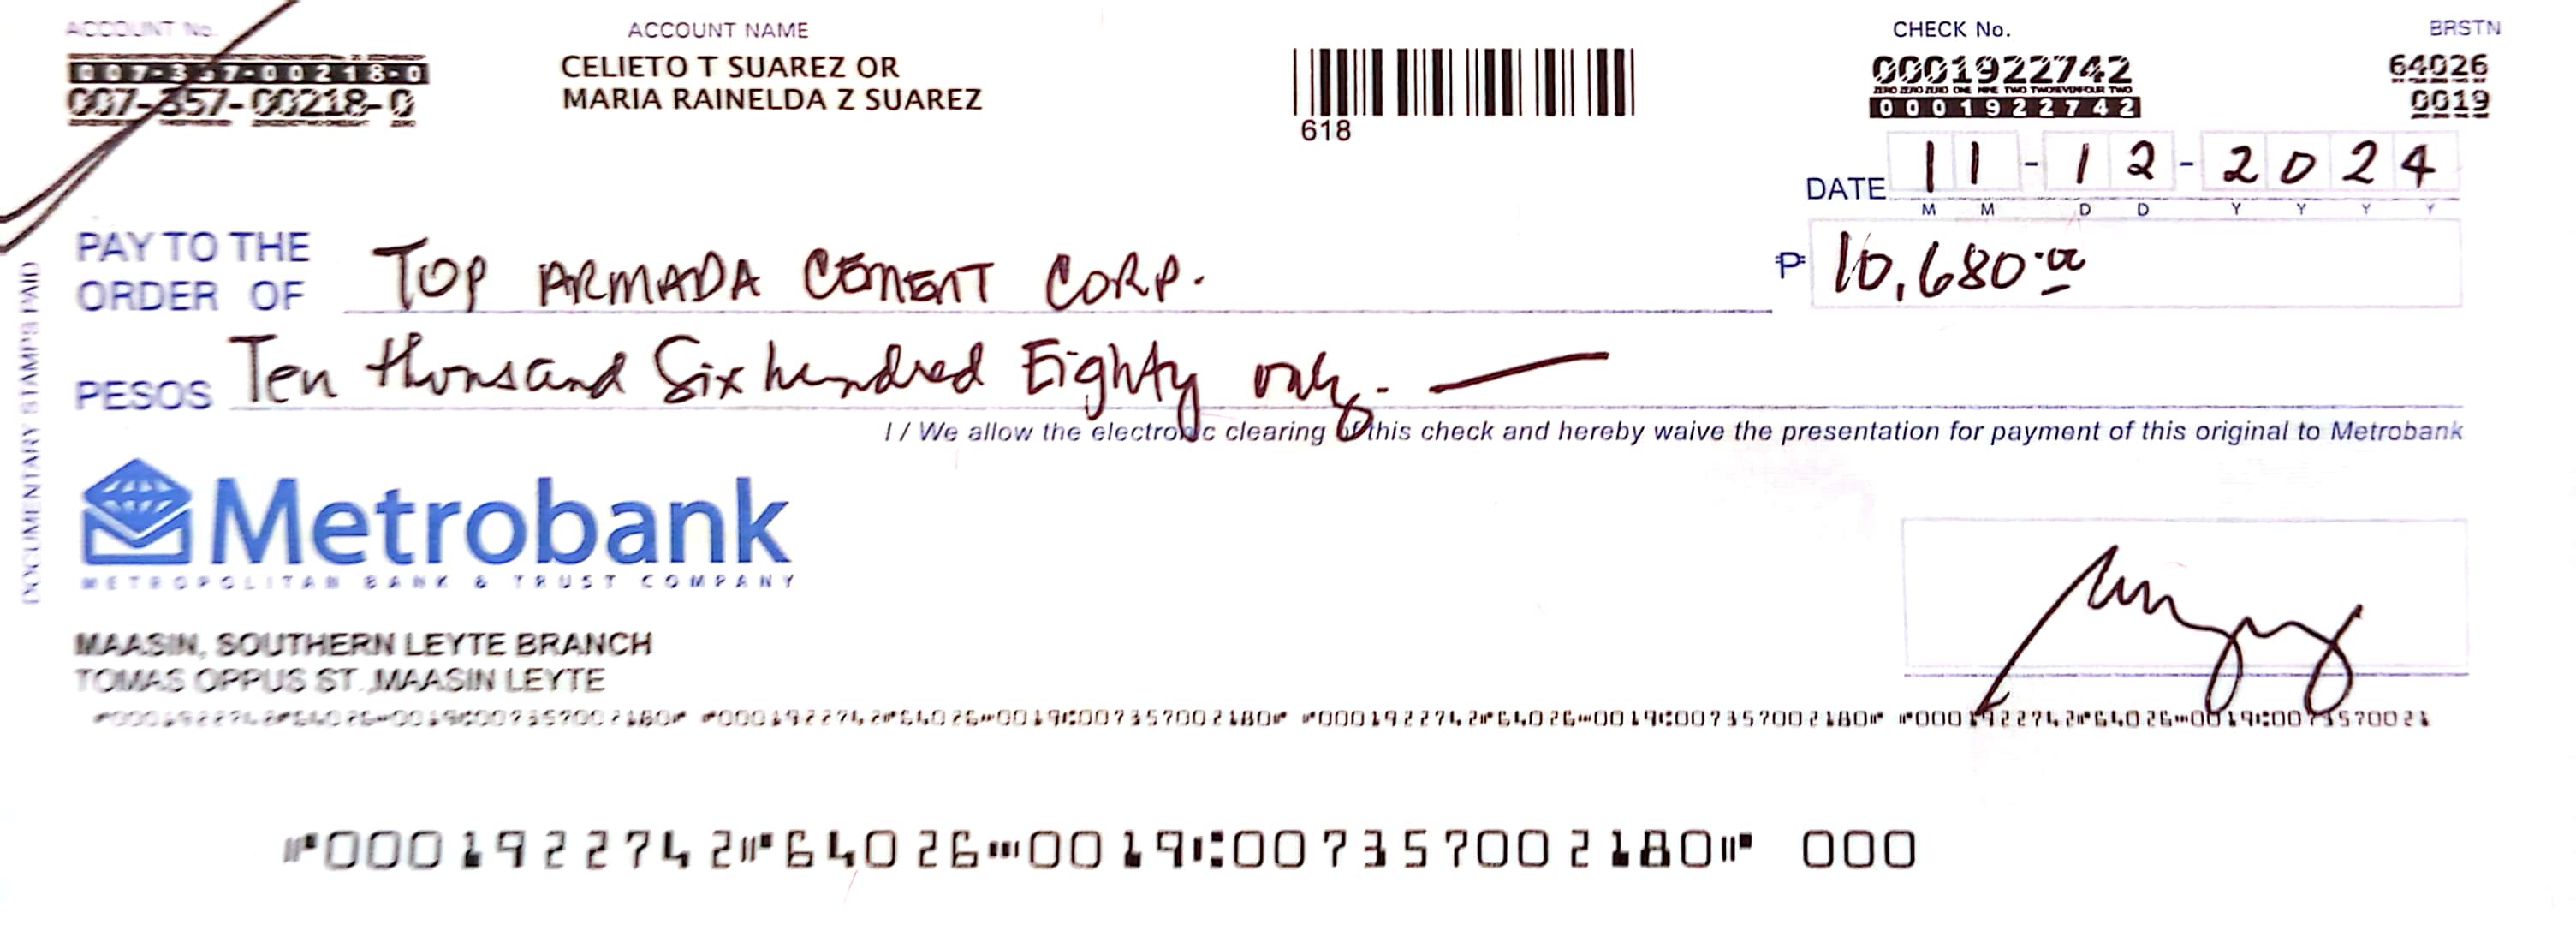 ACCOUNT No.
007-357-00218-0
007-357-00218-0
ACCOUNT NAME
CELIETO T SUAREZ OR
MARIA RAINELDA Z SUAREZ
618
CHECK No.
0001922742
ZERO ZERO ZERO ONE NINE TWO TWO SEVEN FOUR TWO
0001922742
BRSTN
64026
0019
DATE 11-12-2024
M M D D Y Y Y Y
PAY TO THE
ORDER OF TOP ARMADA CEMENT CORP.
₱ 10,680.00
PESOS Ten thousand Six hundred Eighty only.
I / We allow the electronic clearing of this check and hereby waive the presentation for payment of this original to Metrobank
DOCUMENTARY STAMPS PAID
Metrobank
METROPOLITAN BANK & TRUST COMPANY
MAASIN, SOUTHERN LEYTE BRANCH
TOMAS OPPUS ST.,MAASIN LEYTE
⑈0001922742⑈64026⑉0019⑆007357002180⑈ ⑈0001922742⑈64026⑉0019⑆007357002180⑈ ⑈0001922742⑈64026⑉0019⑆007357002180⑈ ⑈0001922742⑈64026⑉0019⑆0073570021
⑈0001922742⑈64026⑉0019⑆007357002180⑈ 000